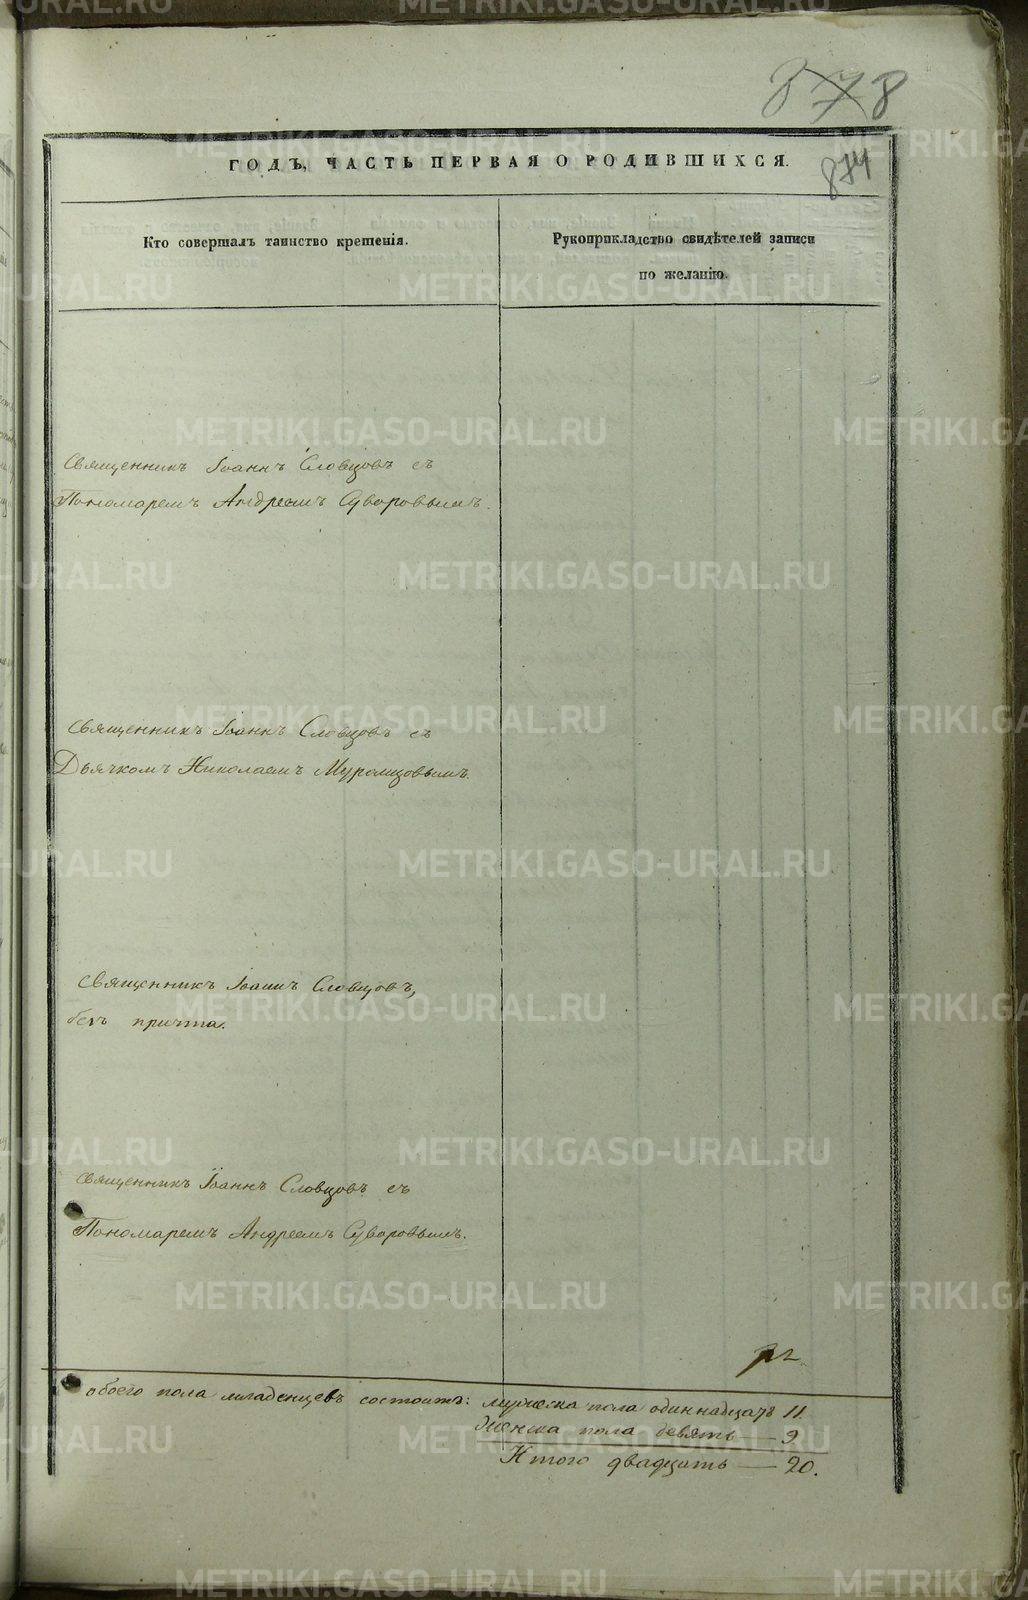 878
ГОДЪ, ЧАСТЬ ПЕРВАЯ О РОДИВШИХСЯ.
874
Кто совершалъ таинство крещенія.
Рукоприкладство свидѣтелей записи
по желанію.
Священникъ Іоаннъ Словцовъ съ
Пономаремъ Андреемъ Суворовымъ.
Священникъ Іоаннъ Словцовъ съ
Дьячкомъ Николаемъ Муромцовымъ.
Священникъ Іоаннъ Словцовъ,
безъ причта.
Священникъ Іоаннъ Словцовъ съ
Пономаремъ Андреемъ Суворовымъ.
обоего пола младенцевъ состоитъ: мужеска пола одиннадцать 11.
Женска пола девять — 9
Итого двадцать — 20.
METRIKI.GASO-URAL.RU